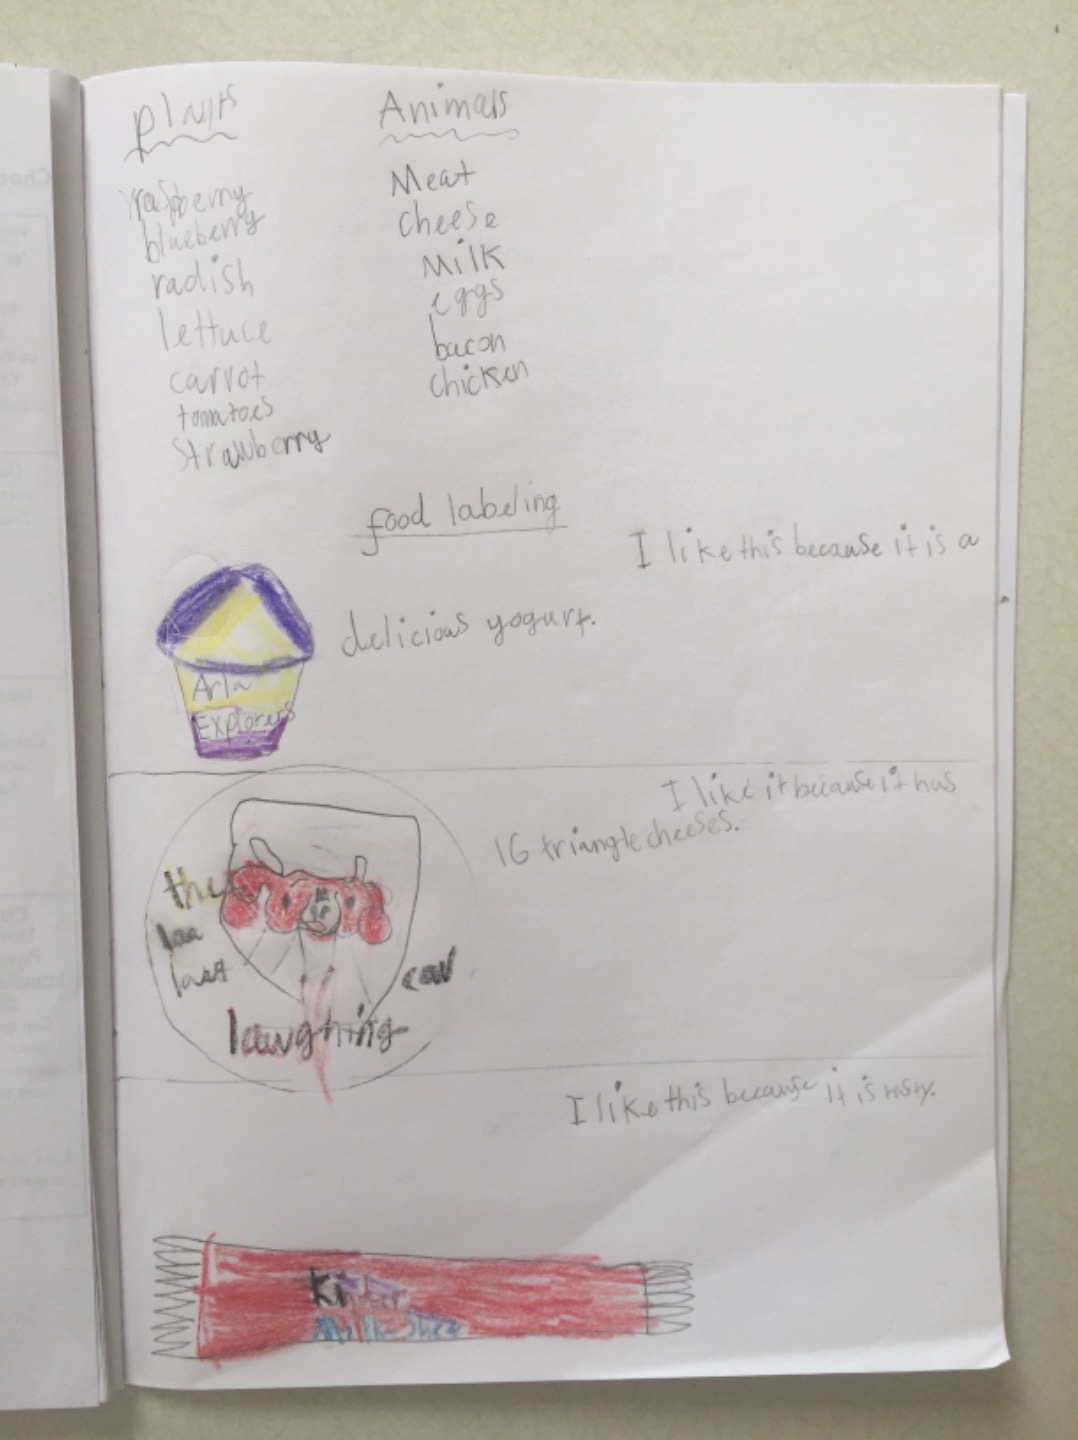 Plants
Animals
raspberry
blueberry
radish
lettuce
carrot
tomatoes
strawberry
Meat
cheese
Milk
eggs
bacon
chicken
food labeling
I like this because it is a
delicious yogurt.
Arla
Explorers
I like it because it has
16 triangle cheeses.
the
laa
cow
laughing
I like this because it is tasty.
Kinder
Milk-Slice